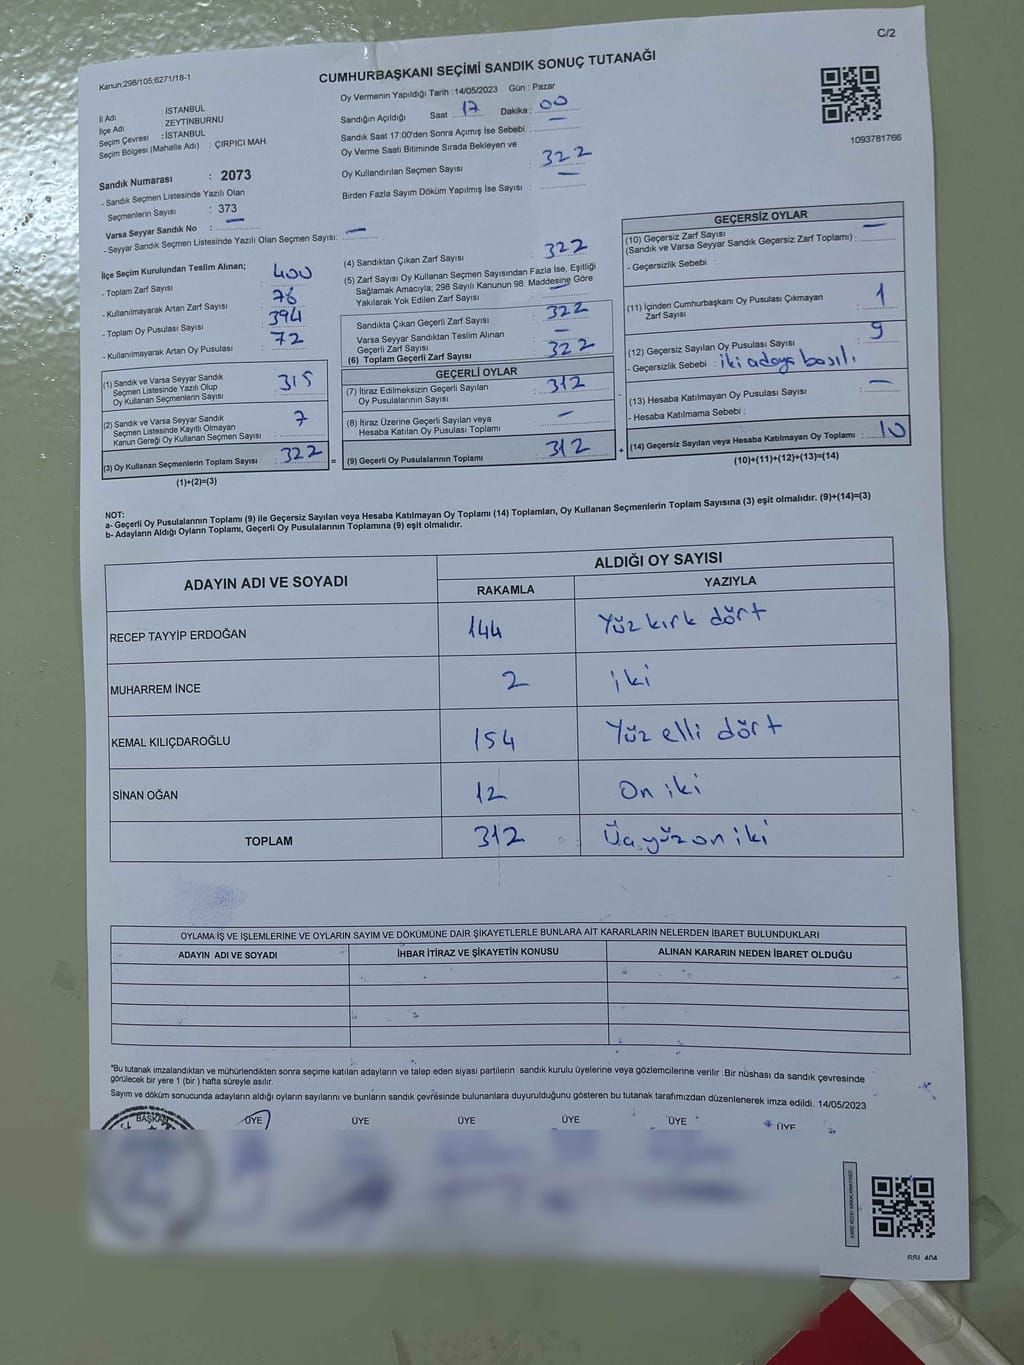 C/2
Kanun:298/105,6271/18-1
CUMHURBAŞKANI SEÇİMİ SANDIK SONUÇ TUTANAĞI
Oy Vermenin Yapıldığı Tarih : 14/05/2023 Gün : Pazar
İl Adı : İSTANBUL
İlçe Adı : ZEYTİNBURNU
Seçim Çevresi : İSTANBUL
Seçim Bölgesi (Mahalle Adı) : ÇIRPICI MAH.
Sandığın Açıldığı Saat : 17 Dakika : 00
Sandık Saat 17:00'den Sonra Açımış İse Sebebi : —
Oy Verme Saati Bitiminde Sırada Bekleyen ve
Oy Kullandırılan Seçmen Sayısı : 322
Birden Fazla Sayım Döküm Yapılmış İse Sayısı : —
1093781766
Sandık Numarası : 2073
- Sandık Seçmen Listesinde Yazılı Olan
Seçmenlerin Sayısı : 373
Varsa Seyyar Sandık No : —
- Seyyar Sandık Seçmen Listesinde Yazılı Olan Seçmen Sayısı: —
İlçe Seçim Kurulundan Teslim Alınan;
- Toplam Zarf Sayısı : 400
- Kullanılmayarak Artan Zarf Sayısı : 78
- Toplam Oy Pusulası Sayısı : 394
- Kullanılmayarak Artan Oy Pusulası : 72
(1) Sandık ve Varsa Seyyar Sandık
Seçmen Listesinde Yazılı Olup
Oy Kullanan Seçmenlerin Sayısı : 315
(2) Sandık ve Varsa Seyyar Sandık
Seçmen Listesinde Kayıtlı Olmayan
Kanun Gereği Oy Kullanan Seçmen Sayısı : 7
(3) Oy Kullanan Seçmenlerin Toplam Sayısı : 322
(1)+(2)=(3)
(4) Sandıktan Çıkan Zarf Sayısı : 322
(5) Zarf Sayısı Oy Kullanan Seçmen Sayısından Fazla İse, Eşitliği
Sağlamak Amacıyla; 298 Sayılı Kanunun 98. Maddesine Göre
Yakılarak Yok Edilen Zarf Sayısı : —
Sandıkta Çıkan Geçerli Zarf Sayısı : 322
Varsa Seyyar Sandıktan Teslim Alınan
Geçerli Zarf Sayısı : —
(6) Toplam Geçerli Zarf Sayısı : 322
GEÇERLİ OYLAR
(7) İtiraz Edilmeksizin Geçerli Sayılan
Oy Pusulalarının Sayısı : 312
(8) İtiraz Üzerine Geçerli Sayılan veya
Hesaba Katılan Oy Pusulası Toplamı : —
= (9) Geçerli Oy Pusulalarının Toplamı : 312
GEÇERSİZ OYLAR
(10) Geçersiz Zarf Sayısı
(Sandık ve Varsa Seyyar Sandık Geçersiz Zarf Toplamı) : —
- Geçersizlik Sebebi :
(11) İçinden Cumhurbaşkanı Oy Pusulası Çıkmayan
Zarf Sayısı : 1
(12) Geçersiz Sayılan Oy Pusulası Sayısı : 9
- Geçersizlik Sebebi : iki adaya basılı.
(13) Hesaba Katılmayan Oy Pusulası Sayısı : —
- Hesaba Katılmama Sebebi :
+ (14) Geçersiz Sayılan veya Hesaba Katılmayan Oy Toplamı : 10
(10)+(11)+(12)+(13)=(14)
NOT:
a- Geçerli Oy Pusulalarının Toplamı (9) ile Geçersiz Sayılan veya Hesaba Katılmayan Oy Toplamı (14) Toplamları, Oy Kullanan Seçmenlerin Toplam Sayısına (3) eşit olmalıdır. (9)+(14)=(3)
b- Adayların Aldığı Oyların Toplamı, Geçerli Oy Pusulalarının Toplamına (9) eşit olmalıdır.
ADAYIN ADI VE SOYADI ALDIĞI OY SAYISI
RAKAMLA YAZIYLA
RECEP TAYYİP ERDOĞAN 144 Yüz kırk dört
MUHARREM İNCE 2 iki
KEMAL KILIÇDAROĞLU 154 Yüz elli dört
SİNAN OĞAN 12 On iki
TOPLAM 312 Üç yüz on iki
OYLAMA İŞ VE İŞLEMLERİNE VE OYLARIN SAYIM VE DÖKÜMÜNE DAİR ŞİKAYETLERLE BUNLARA AİT KARARLARIN NELERDEN İBARET BULUNDUKLARI
ADAYIN ADI VE SOYADI İHBAR İTİRAZ VE ŞİKAYETİN KONUSU ALINAN KARARIN NEDEN İBARET OLDUĞU
*Bu tutanak imzalandıktan ve mühürlendikten sonra seçime katılan adayların ve talep eden siyasi partilerin sandık kurulu üyelerine veya gözlemcilerine verilir. Bir nüshası da sandık çevresinde
görülecek bir yere 1 (bir ) hafta süreyle asılır.
Sayım ve döküm sonucunda adayların aldığı oyların sayılarını ve bunların sandık çevresinde bulunanlara duyurulduğunu gösteren bu tutanak tarafımızdan düzenlenerek imza edildi. 14/05/2023
BAŞKAN ÜYE ÜYE ÜYE ÜYE ÜYE ÜYE